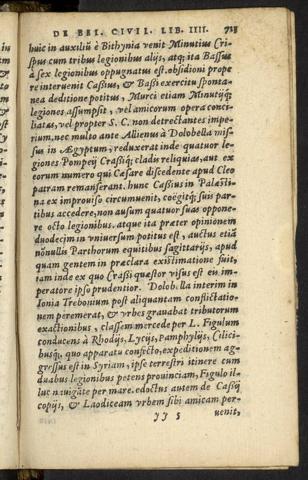 DE BEL. CIVIL. LIB. IIII. 713
huic in auxiliũ è Bithynia venit Minutius Cri-
spus cum tribus legionibus alijs, atq; ita Bassus
à sex legionibus oppugnatus est. obsidioni prope
re interuenit Cassius, & Bassi exercitu sponta-
nea deditione potitus, Murci etiam Minutijq;
legiones assumpsit, vel amicorum opera conci-
liatus, vel propter S.C. non detrectantes impe-
rium. nec multo ante Allienus à Dolobella mis-
sus in Ægyptum, reduxerat inde quatuor le-
giones Pompeij Crassiq; cladis reliquias, aut ex
eorum numero qui Cæsare discedente apud Cleo
patram remanserant. hunc Cassius in Palæsti-
na ex improuiso circumuenit, coëgitq; suis par-
tibus accedere, non ausum quatuor suas oppone-
re octo legionibus. atque ita præter opinionem
duodecim in vniuersum potitus est, auctus etiã
nõnullis Parthorum equitibus sagittarijs, apud
quam gentem in præclara existimatione fuit,
iam inde ex quo Crassi quæstor visus est eò im-
peratore ipso prudentior. Dolobella interim in
Ionia Trebonium post aliquantam conflictatio-
nem peremerat, & vrbes grauabat tributorum
exactionibus, classem mercede per L. Figulum
conducens à Rhodijs, Lycijs, Pamphylijs, Cilici-
busq;. quo apparatu confecto, expeditionem ag-
gressus est in Syriam, ipse terrestri itinere cum
duabus legionibus petens prouinciam, Figulo il-
luc nauigāte per mare. edoctus autem de Cassij
copijs, & Laodiceam vrbem sibi amicam per-
JJ 5 uenit,